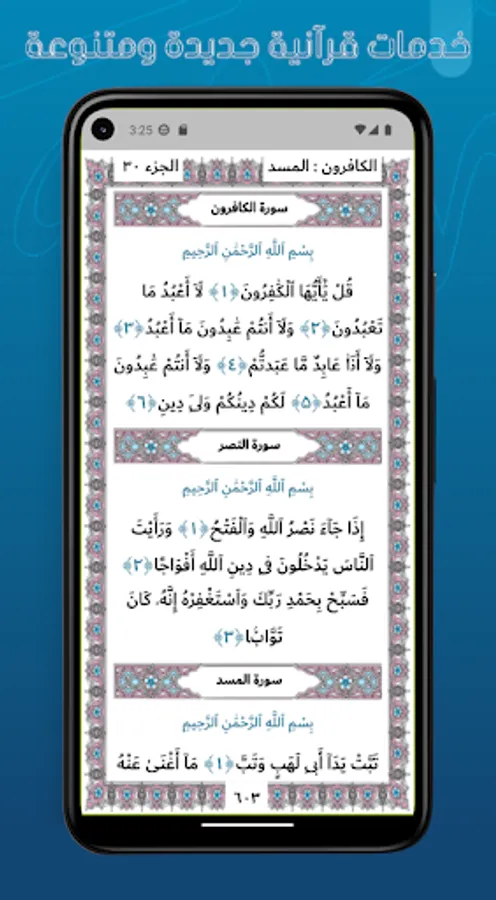 خدمات قرآنية جديدة ومتنوعة
3:25
الكافرون : المسد
الجزء ٣٠
سورة الكافرون
بِسْمِ ٱللَّهِ ٱلرَّحْمَٰنِ ٱلرَّحِيمِ
قُلْ يَٰٓأَيُّهَا ٱلْكَٰفِرُونَ ﴿١﴾ لَآ أَعْبُدُ مَا
تَعْبُدُونَ ﴿٢﴾ وَلَآ أَنتُمْ عَٰبِدُونَ مَآ أَعْبُدُ ﴿٣﴾
وَلَآ أَنَا۠ عَابِدٌ مَّا عَبَدتُّمْ ﴿٤﴾ وَلَآ أَنتُمْ عَٰبِدُونَ
مَآ أَعْبُدُ ﴿٥﴾ لَكُمْ دِينُكُمْ وَلِىَ دِينِ ﴿٦﴾
سورة النصر
بِسْمِ ٱللَّهِ ٱلرَّحْمَٰنِ ٱلرَّحِيمِ
إِذَا جَآءَ نَصْرُ ٱللَّهِ وَٱلْفَتْحُ ﴿١﴾ وَرَأَيْتَ
ٱلنَّاسَ يَدْخُلُونَ فِى دِينِ ٱللَّهِ أَفْوَاجًا ﴿٢﴾
فَسَبِّحْ بِحَمْدِ رَبِّكَ وَٱسْتَغْفِرْهُ إِنَّهُۥ كَانَ
تَوَّابًۢا ﴿٣﴾
سورة المسد
بِسْمِ ٱللَّهِ ٱلرَّحْمَٰنِ ٱلرَّحِيمِ
تَبَّتْ يَدَآ أَبِى لَهَبٍ وَتَبَّ ﴿١﴾ مَآ أَغْنَىٰ عَنْهُ
٦٠٣